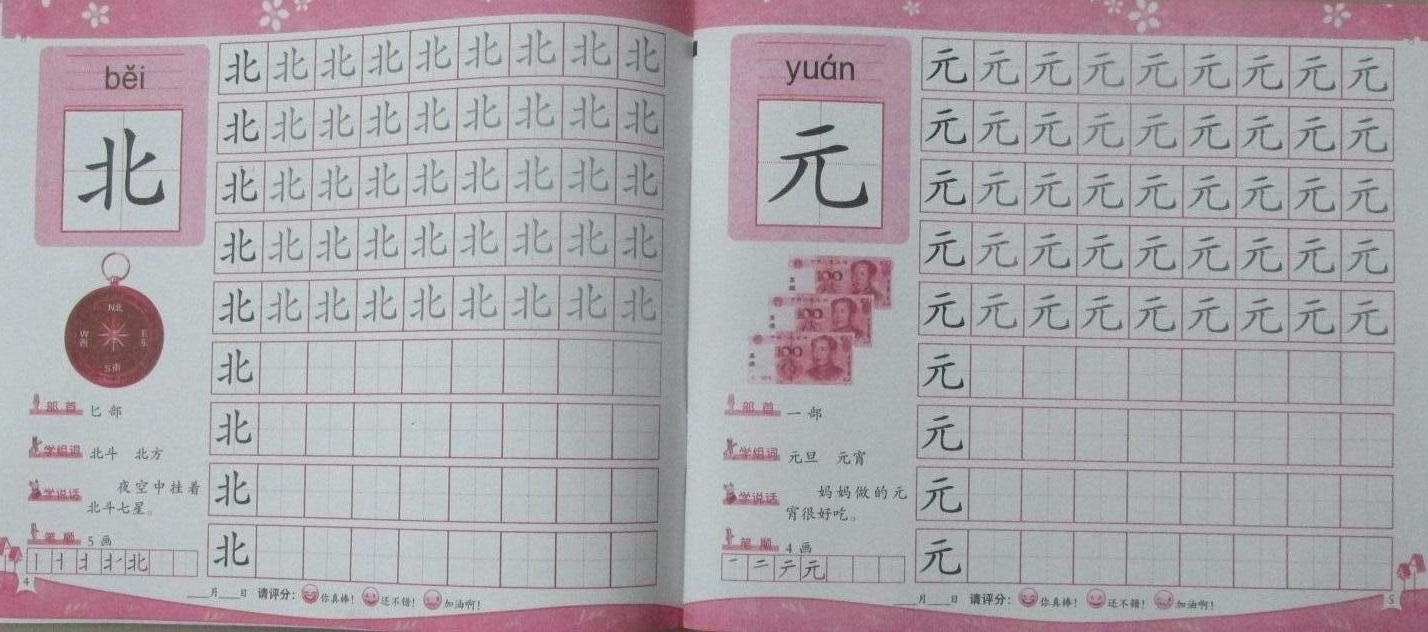 běi
北
北北北北北北北北北
北北北北北北北北北
北北北北北北北北北
北北北北北北北北北
北北北北北北北北北
北
北
北
北
N北
W西 E东
S南
部首 匕部
学组词 北斗 北方
学说话 夜空中挂着
北斗七星。
笔顺 5画
北
4
___月___日 请评分: 你真棒! 还不错! 加油啊!
yuán
元
元元元元元元元元元
元元元元元元元元元
元元元元元元元元元
元元元元元元元元元
元元元元元元元元元
元
元
元
元
100
100
100
部首 一部
学组词 元旦 元宵
学说话 妈妈做的元
宵很好吃。
笔顺 4画
一 二 テ 元
___月___日 请评分: 你真棒! 还不错! 加油啊!
5